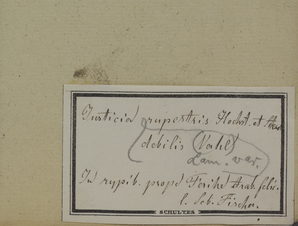 Justicia rupestris Hochst. et Steud
debilis (Vahl)
Lam. var.
In rupib. prope Ferihe Arab. felic.
l. Seb. Fischer.
SCHULTES